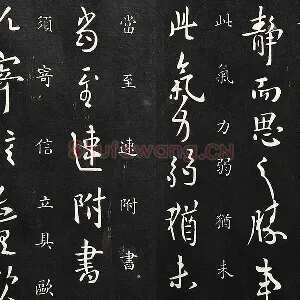 靜而思之勝未
此氣力弱猶未
此氣力弱猶未
當至速附書
當至速附書
須寄信立具歐
寄信
Shufawang.cn